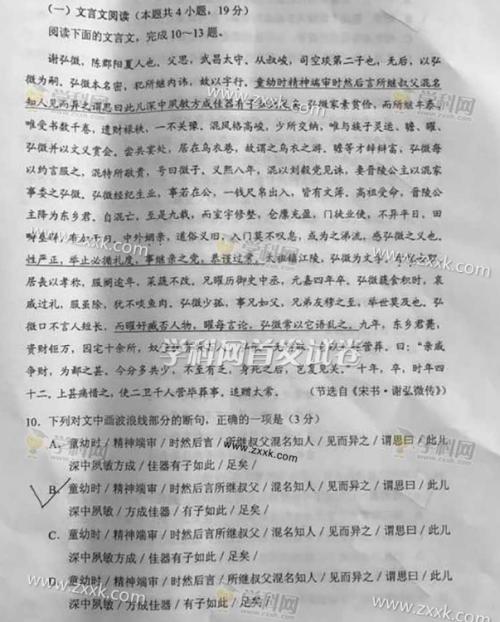 (一)文言文阅读(本题共4小题,19分)
阅读下面的文言文,完成10~13题。
谢弘微,陈郡阳夏人也。父思,武昌太守。从叔峻,司空琰第二子也,无后,以弘
微为嗣。弘微本名密,犯所继内讳,故以字行。童幼时精神端审时然后言所继叔父混名
知人见而异之谓思曰此儿深中夙敏方成佳器有子如此足矣。弘微家素贫俭,而所继丰泰,
唯受书数千卷,遗财禄秩,一不关豫。混风格高峻,少所交纳,唯与族子灵运、瞻、曜、
弘微并以文义赏会。尝共宴处,居在乌衣巷,故谓之乌衣之游。瞻等才辞辩富,弘微每
以约言服之,混特所敬贵,号曰微子。义熙八年,混以刘毅党见诛,妻晋陵公主以混家
事委之弘微。弘微经纪生业,事若在公,一钱尺帛出入,皆有文簿。高祖受命,晋陵公
主降为东乡君。自混亡,至是九载,而室宇修整,仓廪充盈,门徒业使,不异平日。田
畴垦辟,有加于旧。中外姻亲,道俗义旧,入门莫不叹息,或为之涕流,感弘微之义也。
性严正,举止必循礼度,事继亲之党,恭谨过常。太祖镇江陵,弘微为文学。
居长以孝称,服阕逾年,菜蔬不改。兄曜历御史中丞,元嘉四年卒。弘微蔬食积时,哀
戚过礼,服虽除,犹不啖鱼肉。弘微少孤,事兄如父,兄弟友穆之至,举世莫及也。弘
微口不言人短长,而曜好臧否人物,曜每言论,弘微常以它语乱之。九年,东乡君薨,
资财钜万,园宅十余所,奴 营葬。曰:“亲戚
争财,为鄙之甚。今分多共少,不至有乏,身死之后,岂复见关。”十年,卒,时年四
十二。上甚痛惜之,使二卫千人营毕葬事。追赠太常。 (节选自《宋书·谢弘微传》)
10. 下列对文中画波浪线部分的断句,正确的一项是(3分)
A. 童幼时/精神端审/时然后言/所继叔父混名知人/见而异之/谓思曰/此儿
深中夙敏方成/佳器有子如此/足矣/
B. 童幼时/精神端审/时然后言所继叔父/混名知人/见而异之/谓思曰/此儿
深中夙敏/方成佳器/有子如此/足矣/
C. 童幼时/精神端审/时然后言/所继叔父混名知人/见而异之/谓思曰/此儿
深中夙敏方成/佳器有子如此/足矣/
D. 童幼时/精神端审/时然后言/所继叔父混名知人/见而异之/谓思曰/此儿
深中夙敏/方成佳器/有子如此/足矣/
学科网首发试卷
学科网
www.zxxk.com